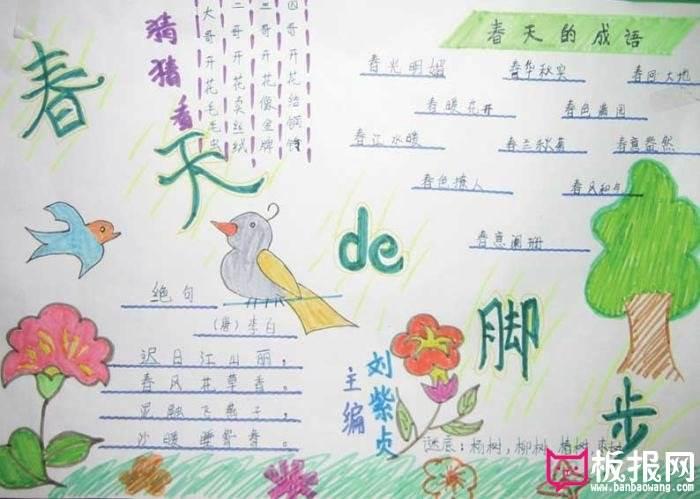 春天de脚步
猜猜看
大哥开花毛毛虫
二哥开花卖丝绒
三哥开花像金牌
四哥开花结铜
春天的成语
春光明媚 春华秋实 春回大地
春暖花开 春色满园
春江水暖 春兰秋菊 春意盎然
春色撩人 春风和
春意阑珊
绝句
(唐)李白
迟日江山丽。
春风花草香。
泥融飞燕子,
沙暖睡鸳鸯。
主编
刘紫贞
谜底:杨树,柳树,椿树
板报网
www.banbaowang.com